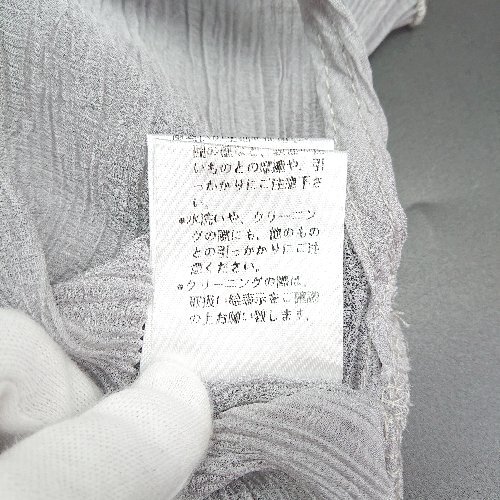 いものとの摩擦や、引
っかかりにご注意下さ
い。
●水洗いや、クリーニン
グの際にも、他のもの
との引っかかりにご注
意ください。
●クリーニングの際は、
取扱い絵表示をご確認
の上お願い致します。